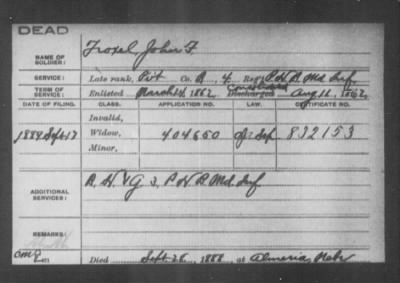 DEAD
NAME OF SOLDIER: Troxel, John F.
SERVICE: Late rank, Pvt Co. A 4 Reg't P H B Md Inf.
TERM OF SERVICE: Enlisted March 14, 1862 Discharged Aug 11, 1862
DATE OF FILING. CLASS. APPLICATION NO. LAW. CERTIFICATE NO.
Invalid,
1889 Sept 17 Widow, 404660 832153
Minor,
ADDITIONAL SERVICES: B. H. & G 3. P H B Md. Inf
REMARKS:
Died Sept. 28, 1888, at Almeria, Nebr